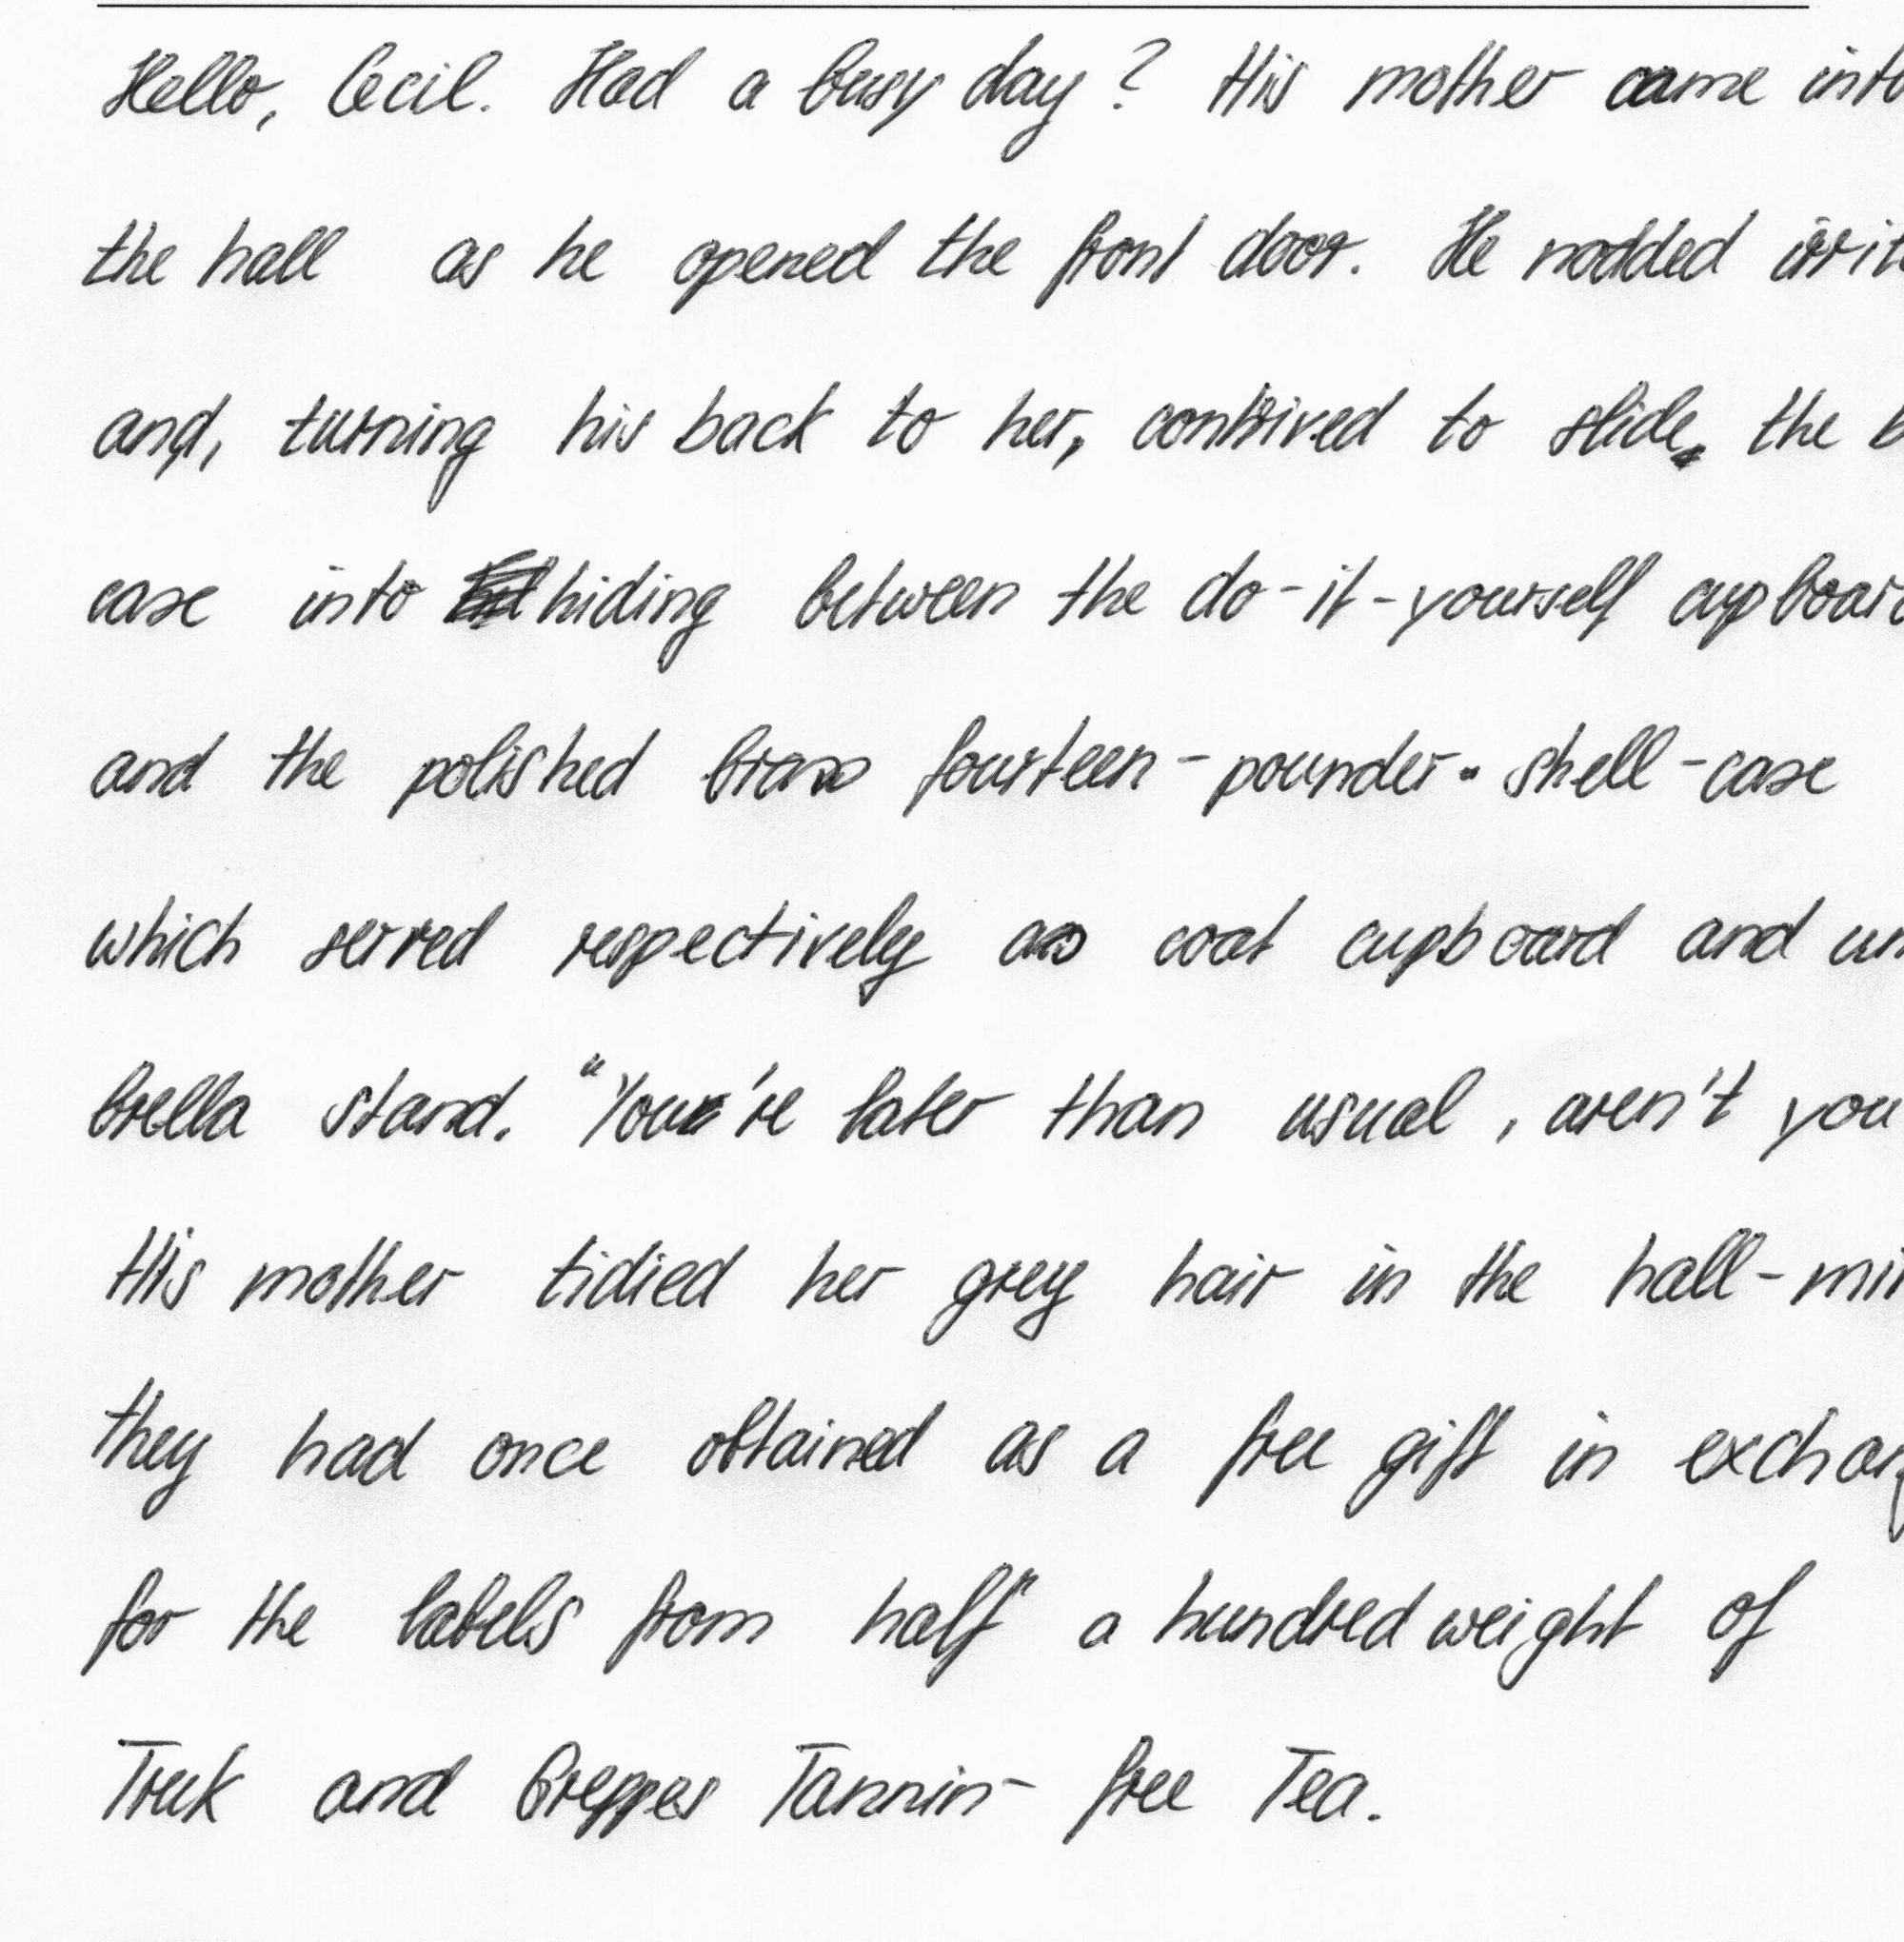 Hello, Cecil. Had a busy day? His mother came into
the hall as he opened the front door. He nodded
and, turning his back to her, contrived to slide, the
case into hiding between the do-it-yourself
and the polished brass fourteen-pounder-shell-case
which served respectively as coat cupboard and um
brella stand. "You're later than usual, aren't you
His mother tidied her grey hair in the
they had once obtained as a free gift in
for the labels from half a hundredweight of
Truk and Greppes Tannin-free Tea.